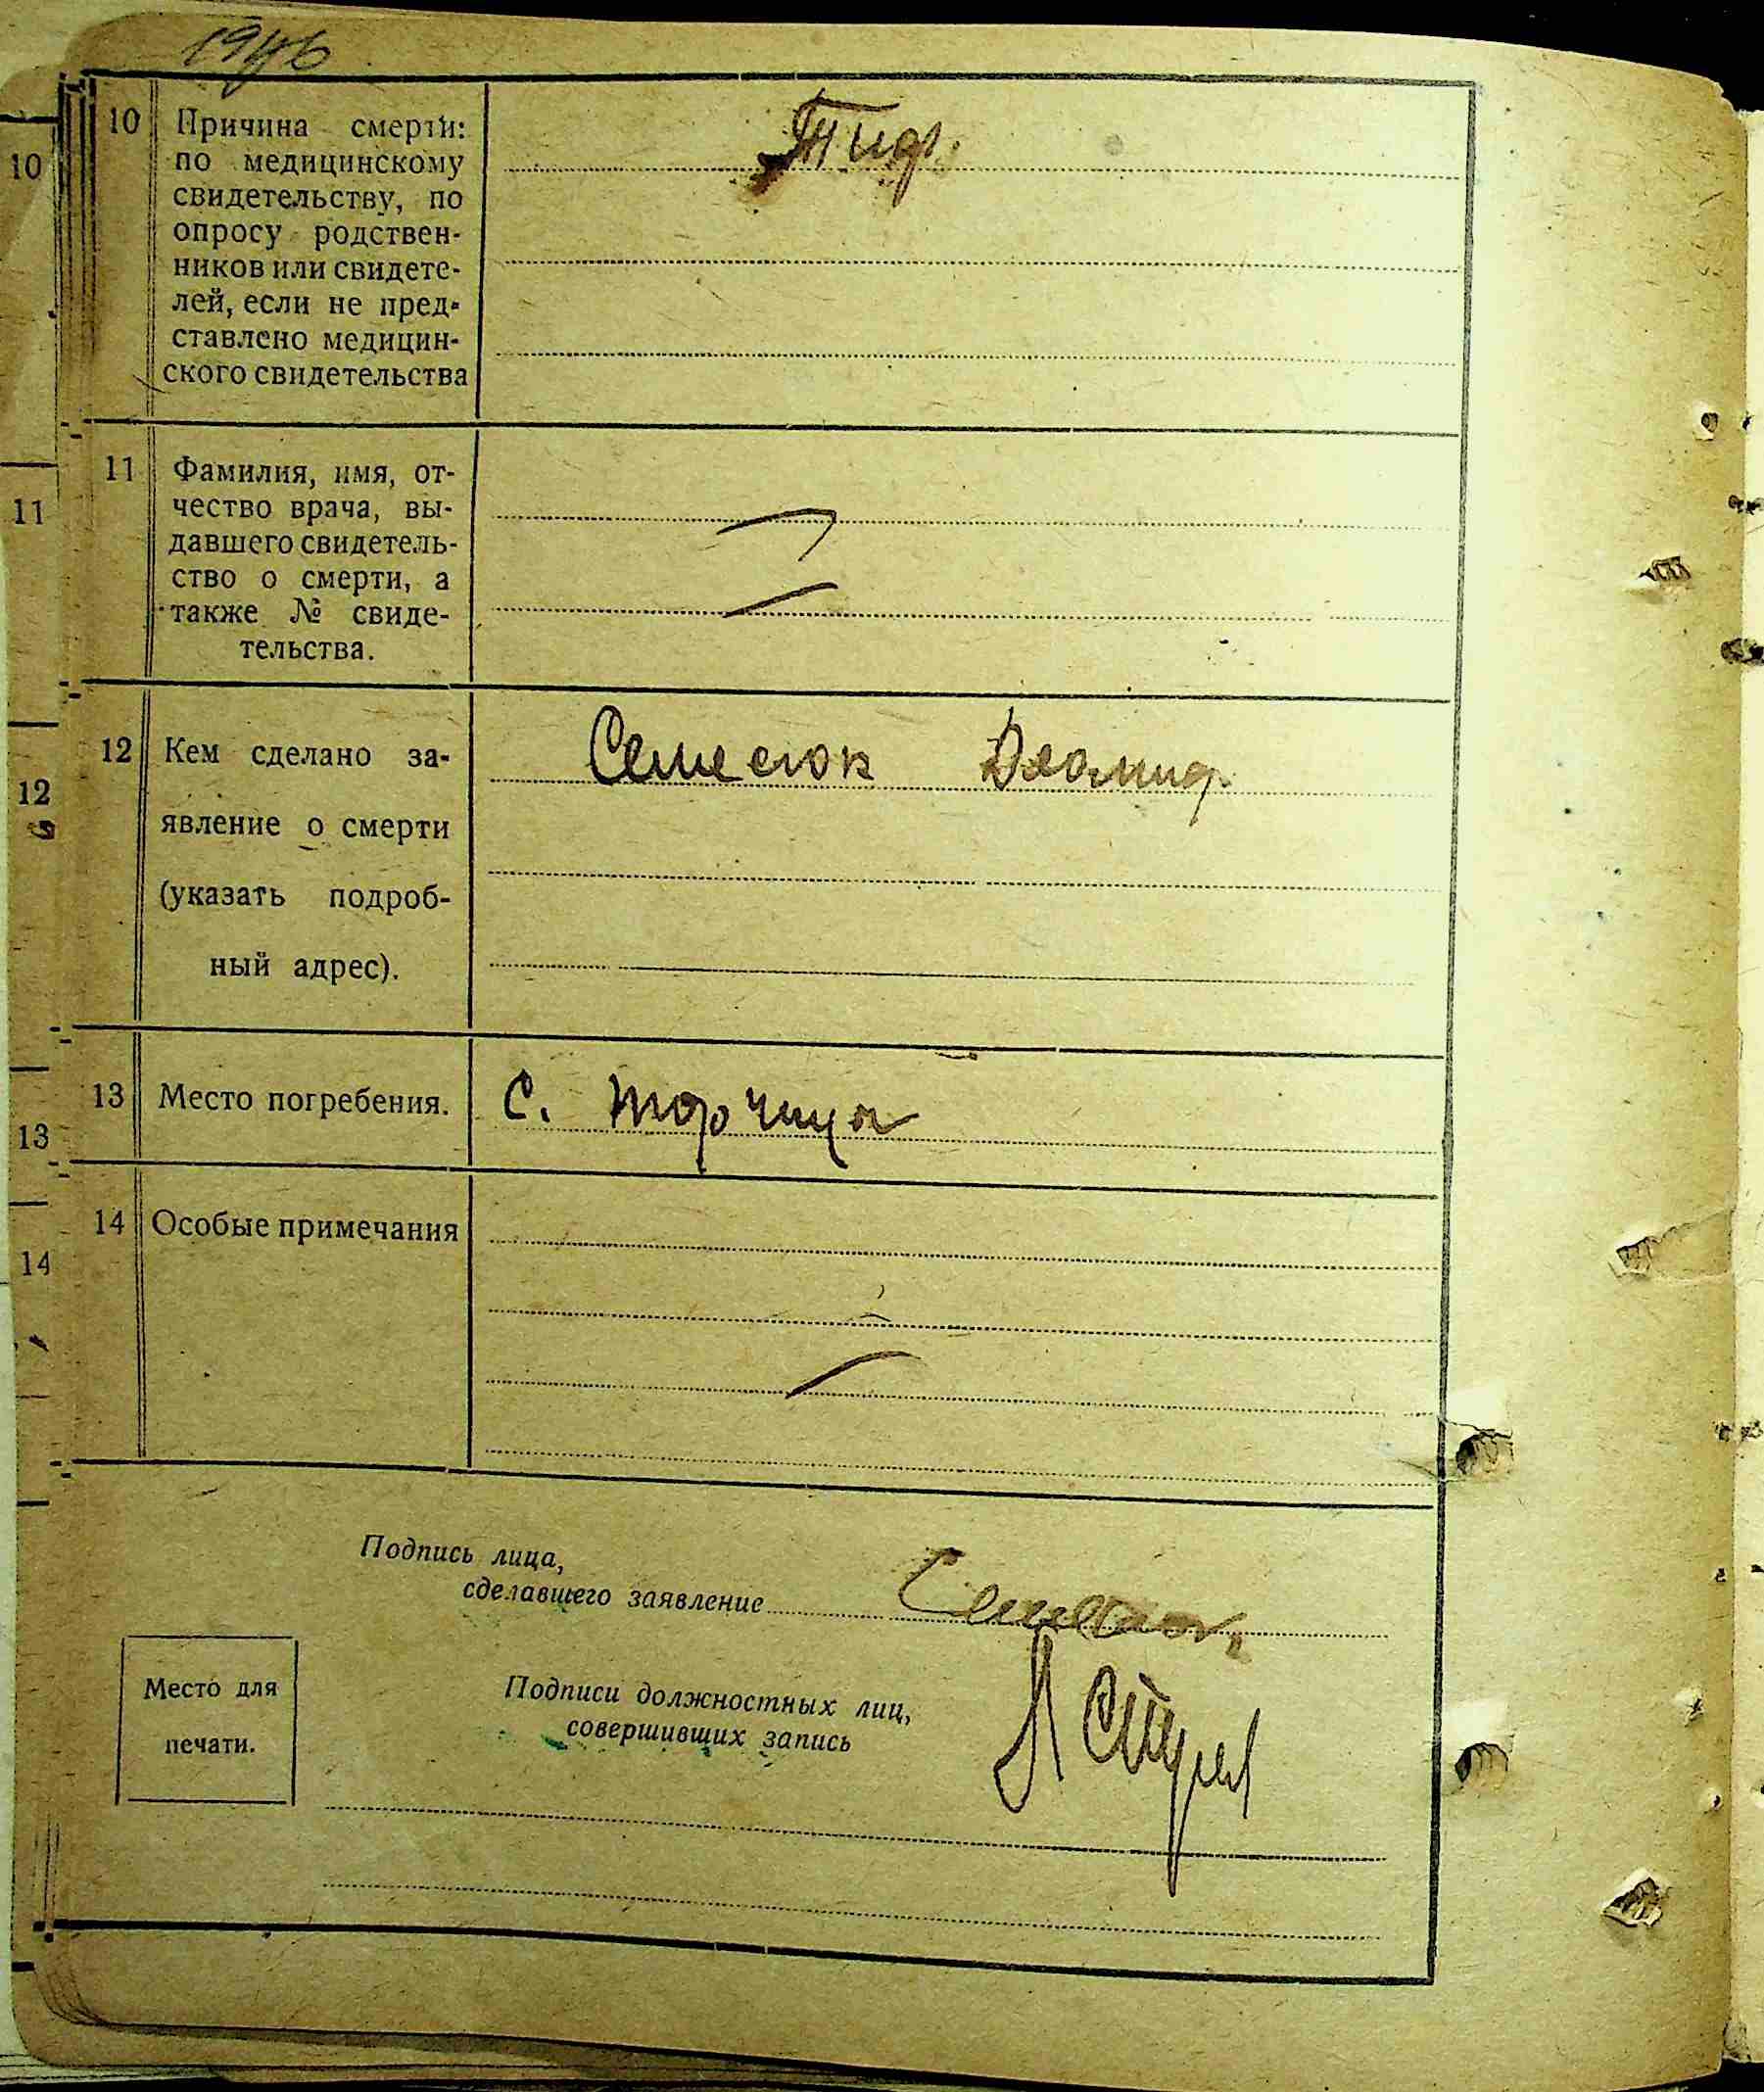 1946
10 Причина смерти: Тиф.
по медицинскому
10
свидетельству, по
опросу родствен-
ников или свидете-
лей, если не пред-
ставлено медицин-
ского свидетельства
11 Фамилия, имя, от-
11 чество врача, вы-
давшего свидетель-
ство о смерти, а
также № свиде-
тельства.
12 Кем сделано за-
12
явление о смерти
(указать подроб-
ный адрес).
13 Место погребения. С. Торчица
13
14 Особые примечания
14
Подпись лица,
сделавшего заявление
Место для
печати.
Подписи должностных лиц,
совершивших запись